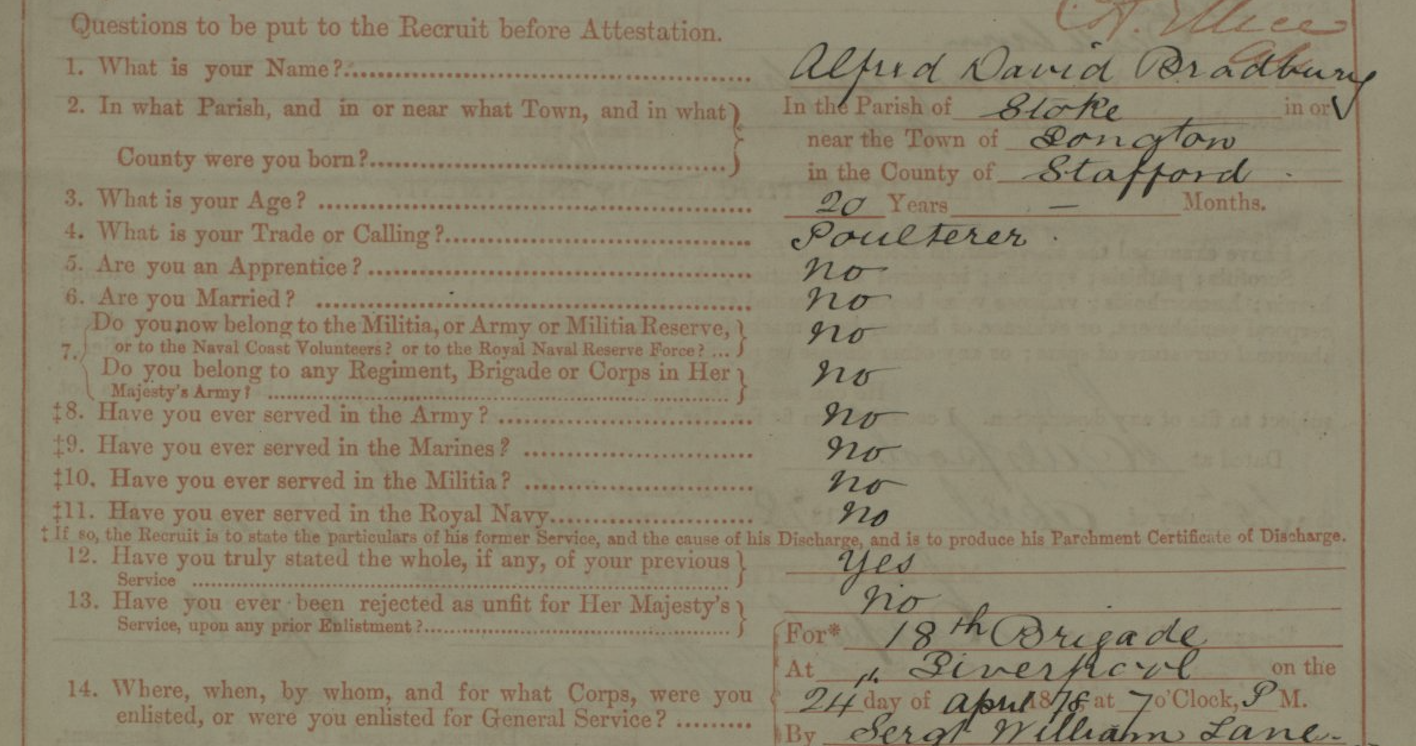 Questions to be put to the Recruit before Attestation.
1. What is your Name?.......... Alfred David Bradbury
2. In what Parish, and in or near what Town, and in what } In the Parish of Stoke in or
near the Town of Longton
County were you born?.......... in the County of Stafford
3. What is your Age? .......... 20 Years — Months.
4. What is your Trade or Calling?.......... Poulterer
5. Are you an Apprentice?.......... no
6. Are you Married? .......... no
7. { Do you now belong to the Militia, or Army or Militia Reserve, } no
or to the Naval Coast Volunteers? or to the Royal Naval Reserve Force? ...
Do you belong to any Regiment, Brigade or Corps in Her } no
Majesty's Army? ..........
‡8. Have you ever served in the Army? .......... no
‡9. Have you ever served in the Marines? .......... no
‡10. Have you ever served in the Militia? .......... no
‡11. Have you ever served in the Royal Navy.......... no
‡ If so, the Recruit is to state the particulars of his former Service, and the cause of his Discharge, and is to produce his Parchment Certificate of Discharge.
12. Have you truly stated the whole, if any, of your previous } Yes
Service ..........
13. Have you ever been rejected as unfit for Her Majesty's } no
Service, upon any prior Enlistment?..........
For* 18th Brigade
At Liverpool on the
14. Where, when, by whom, and for what Corps, were you { 24 day of April 1878, at 7 o'Clock, P M.
enlisted, or were you enlisted for General Service? .......... By Sergt William Lane